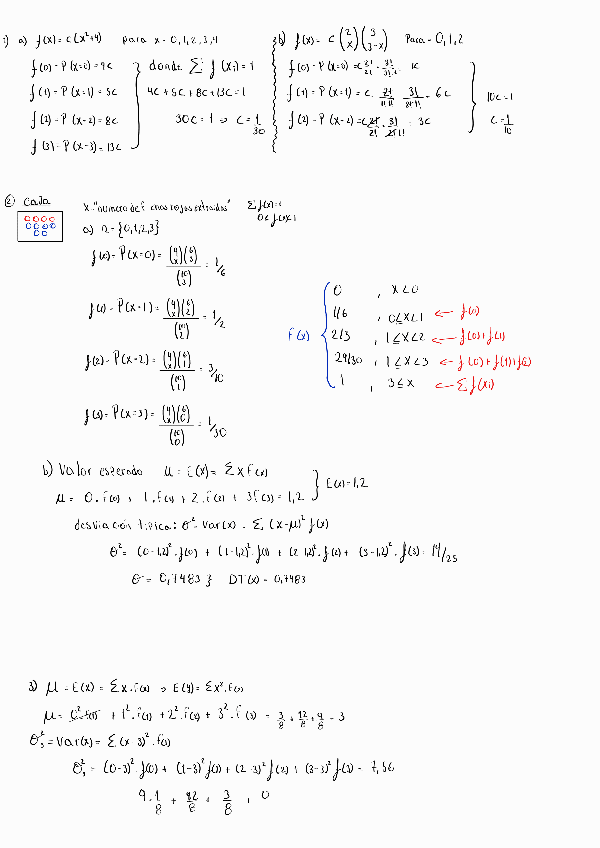 1) a) f(x) = c(x²+4) para x = 0,1,2,3,4
f(0) = P(x=0) = 4c
f(1) = P(x=1) = 5c
f(2) = P(x=2) = 8c
f(3) = P(x=3) = 13c
donde Σ f(xi) = 1
4c + 5c + 8c + 13c = 1
30c = 1 ⇒ c = 1/30
b) f(x) = c (2 x) (3 3-x) Para = 0,1,2
f(0) = P(x=0) =
f(1) = P(x=1) = c. 2!/1!1! . 3!/2!1! = 6c
f(2) = P(x=2) = 3c
10c = 1
c = 1/10
② Caja
x = "numero de f
a) x = {0,1,2,3}
Σ f(x) = 1
f(0) = P(x=0) = (4 x)(6 3)/(10 3) = 1/6
f(1) = P(x=1) = (4 x)(6 2)/(10 2) = 1/2
f(2) = P(x=2) = (4 x)(6 1)/(10 1) = 3/10
f(3) = P(x=3) = (4 x)(6 0)/(10 0) = 1/30
F(x)
0 , x < 0
1/6 , 0 ≤ x < 1 ← f(0)
2/3 , 1 ≤ x < 2 ← f(0)+f(1)
29/30 , 1 ≤ x < 3 ← f(0)+f(1)+f(2)
1 , 3 ≤ x ← Σ f(xi)
b) Valor esperado μ = E(x) = Σ x F(x)
μ = 0.F(0) + 1.F(1) + 2.F(2) + 3F(3) = 1,2 } E(x) = 1,2
desviación típica: σ² = Var(x) = Σ (x-μ)² f(x)
σ² = (0-1,2)².f(0) + (1-1,2)².f(1) + (2-1,2)².f(2) + (3-1,2)².f(3) = 14/25
σ = 0,7483 } DT(x) = 0,7483
3) μ = E(x) = Σ x.F(x) ⇒ E(y) = Σ x².F(x)
μ = 0².f(0) + 1².F(1) + 2².F(2) + 3².F(3) = 3/8 + 12/8 + 9/8 = 3
σ² = Var(x) = Σ (x-3)².f(x)
σ² = (0-3)².f(0) + (1-3)².f(1) + (2-3)².f(2) + (3-3)².f(3) =
9.1/8 + 12/8 + 3/8 + 0